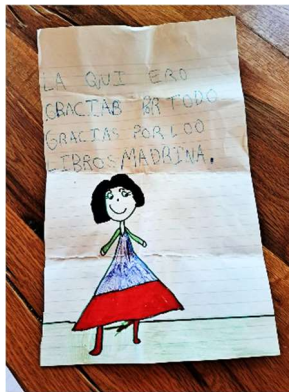 LA QUI ERO
GRACIAS POR TODO
GRACIAS POR LOO
LIBROS MADRINA.